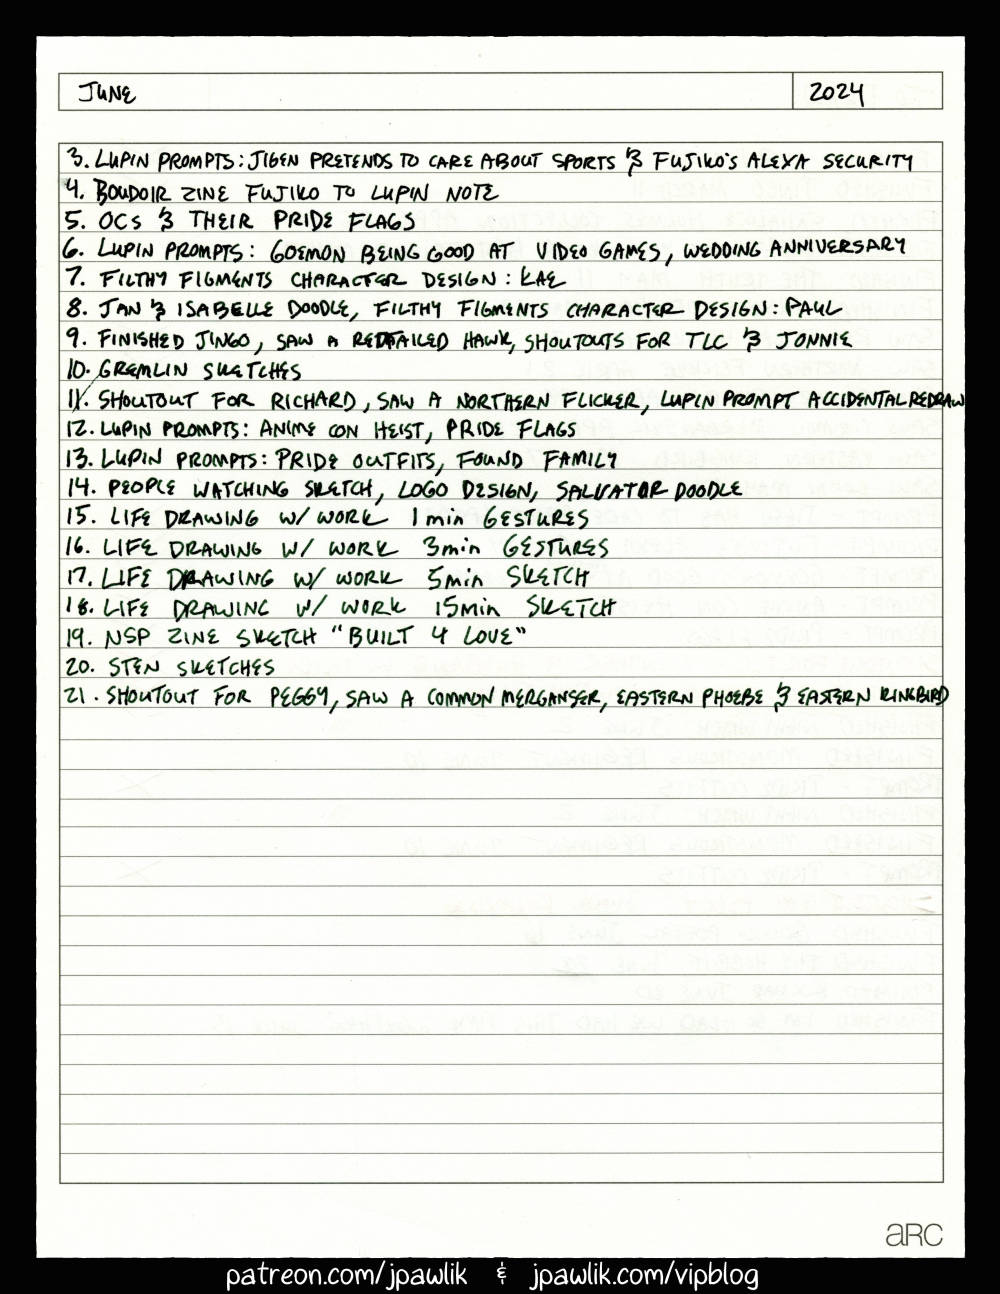 JUNE
2024
3. LUPIN PROMPTS: JIGEN PRETENDS TO CARE ABOUT SPORTS & FUJIKO'S ALEXA SECURITY
4. BOUDOIR ZINE FUJIKO TO LUPIN NOTE
5. OCS & THEIR PRIDE FLAGS
6. LUPIN PROMPTS: GOEMON BEING GOOD AT VIDEO GAMES, WEDDING ANNIVERSARY
7. FILTHY FIGMENTS CHARACTER DESIGN: KAE
8. JAN & ISABELLE DOODLE, FILTHY FIGMENTS CHARACTER DESIGN: PAUL
9. FINISHED JINGO, SAW A REDTAILED HAWK, SHOUTOUTS FOR TLC & JONNIE
10. GREMLIN SKETCHES
11. SHOUTOUT FOR RICHARD, SAW A NORTHERN FLICKER, LUPIN PROMPT ACCIDENTAL REDRAW
12. LUPIN PROMPTS: ANIME CON HEIST, PRIDE FLAGS
13. LUPIN PROMPTS: PRIDE OUTFITS, FOUND FAMILY
14. PEOPLE WATCHING SKETCH, LOGO DESIGN, SALVATOR DOODLE
15. LIFE DRAWING W/ WORK 1min GESTURES
16. LIFE DRAWING W/ WORK 3min GESTURES
17. LIFE DRAWING W/ WORK 5min SKETCH
18. LIFE DRAWING W/ WORK 15min SKETCH
19. NSP ZINE SKETCH "BUILT 4 LOVE"
20. STEN SKETCHES
21. SHOUTOUT FOR PEGGY, SAW A COMMON MERGANSER, EASTERN PHOEBE & EASTERN KINGBIRD
arc
patreon.com/jpawlik & jpawlik.com/vipblog